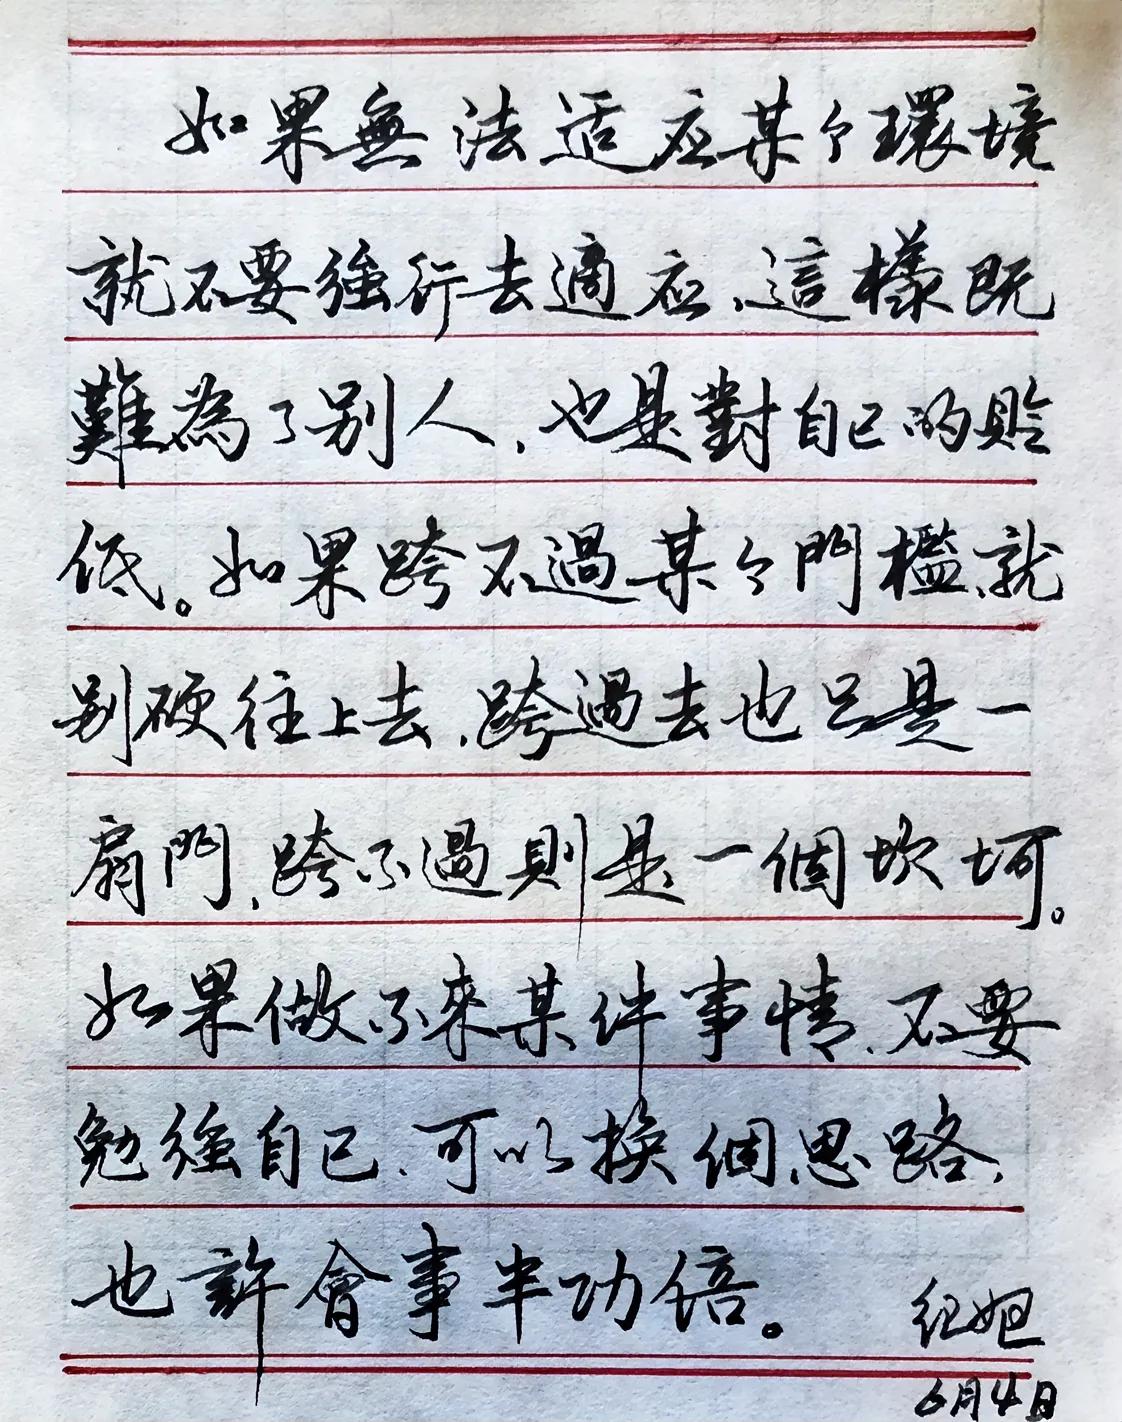 如果無法适应某个環境
就不要強行去適应、這樣既
難為了别人,也是對自己的貶
低。如果跨不過某个門檻、就
别硬往上去,跨過去也只是一
扇門,跨不過則是一個坎坷。
如果做不來某件事情、不要
勉強自己、可以換個思路,
也許會事半功倍。
6月4日